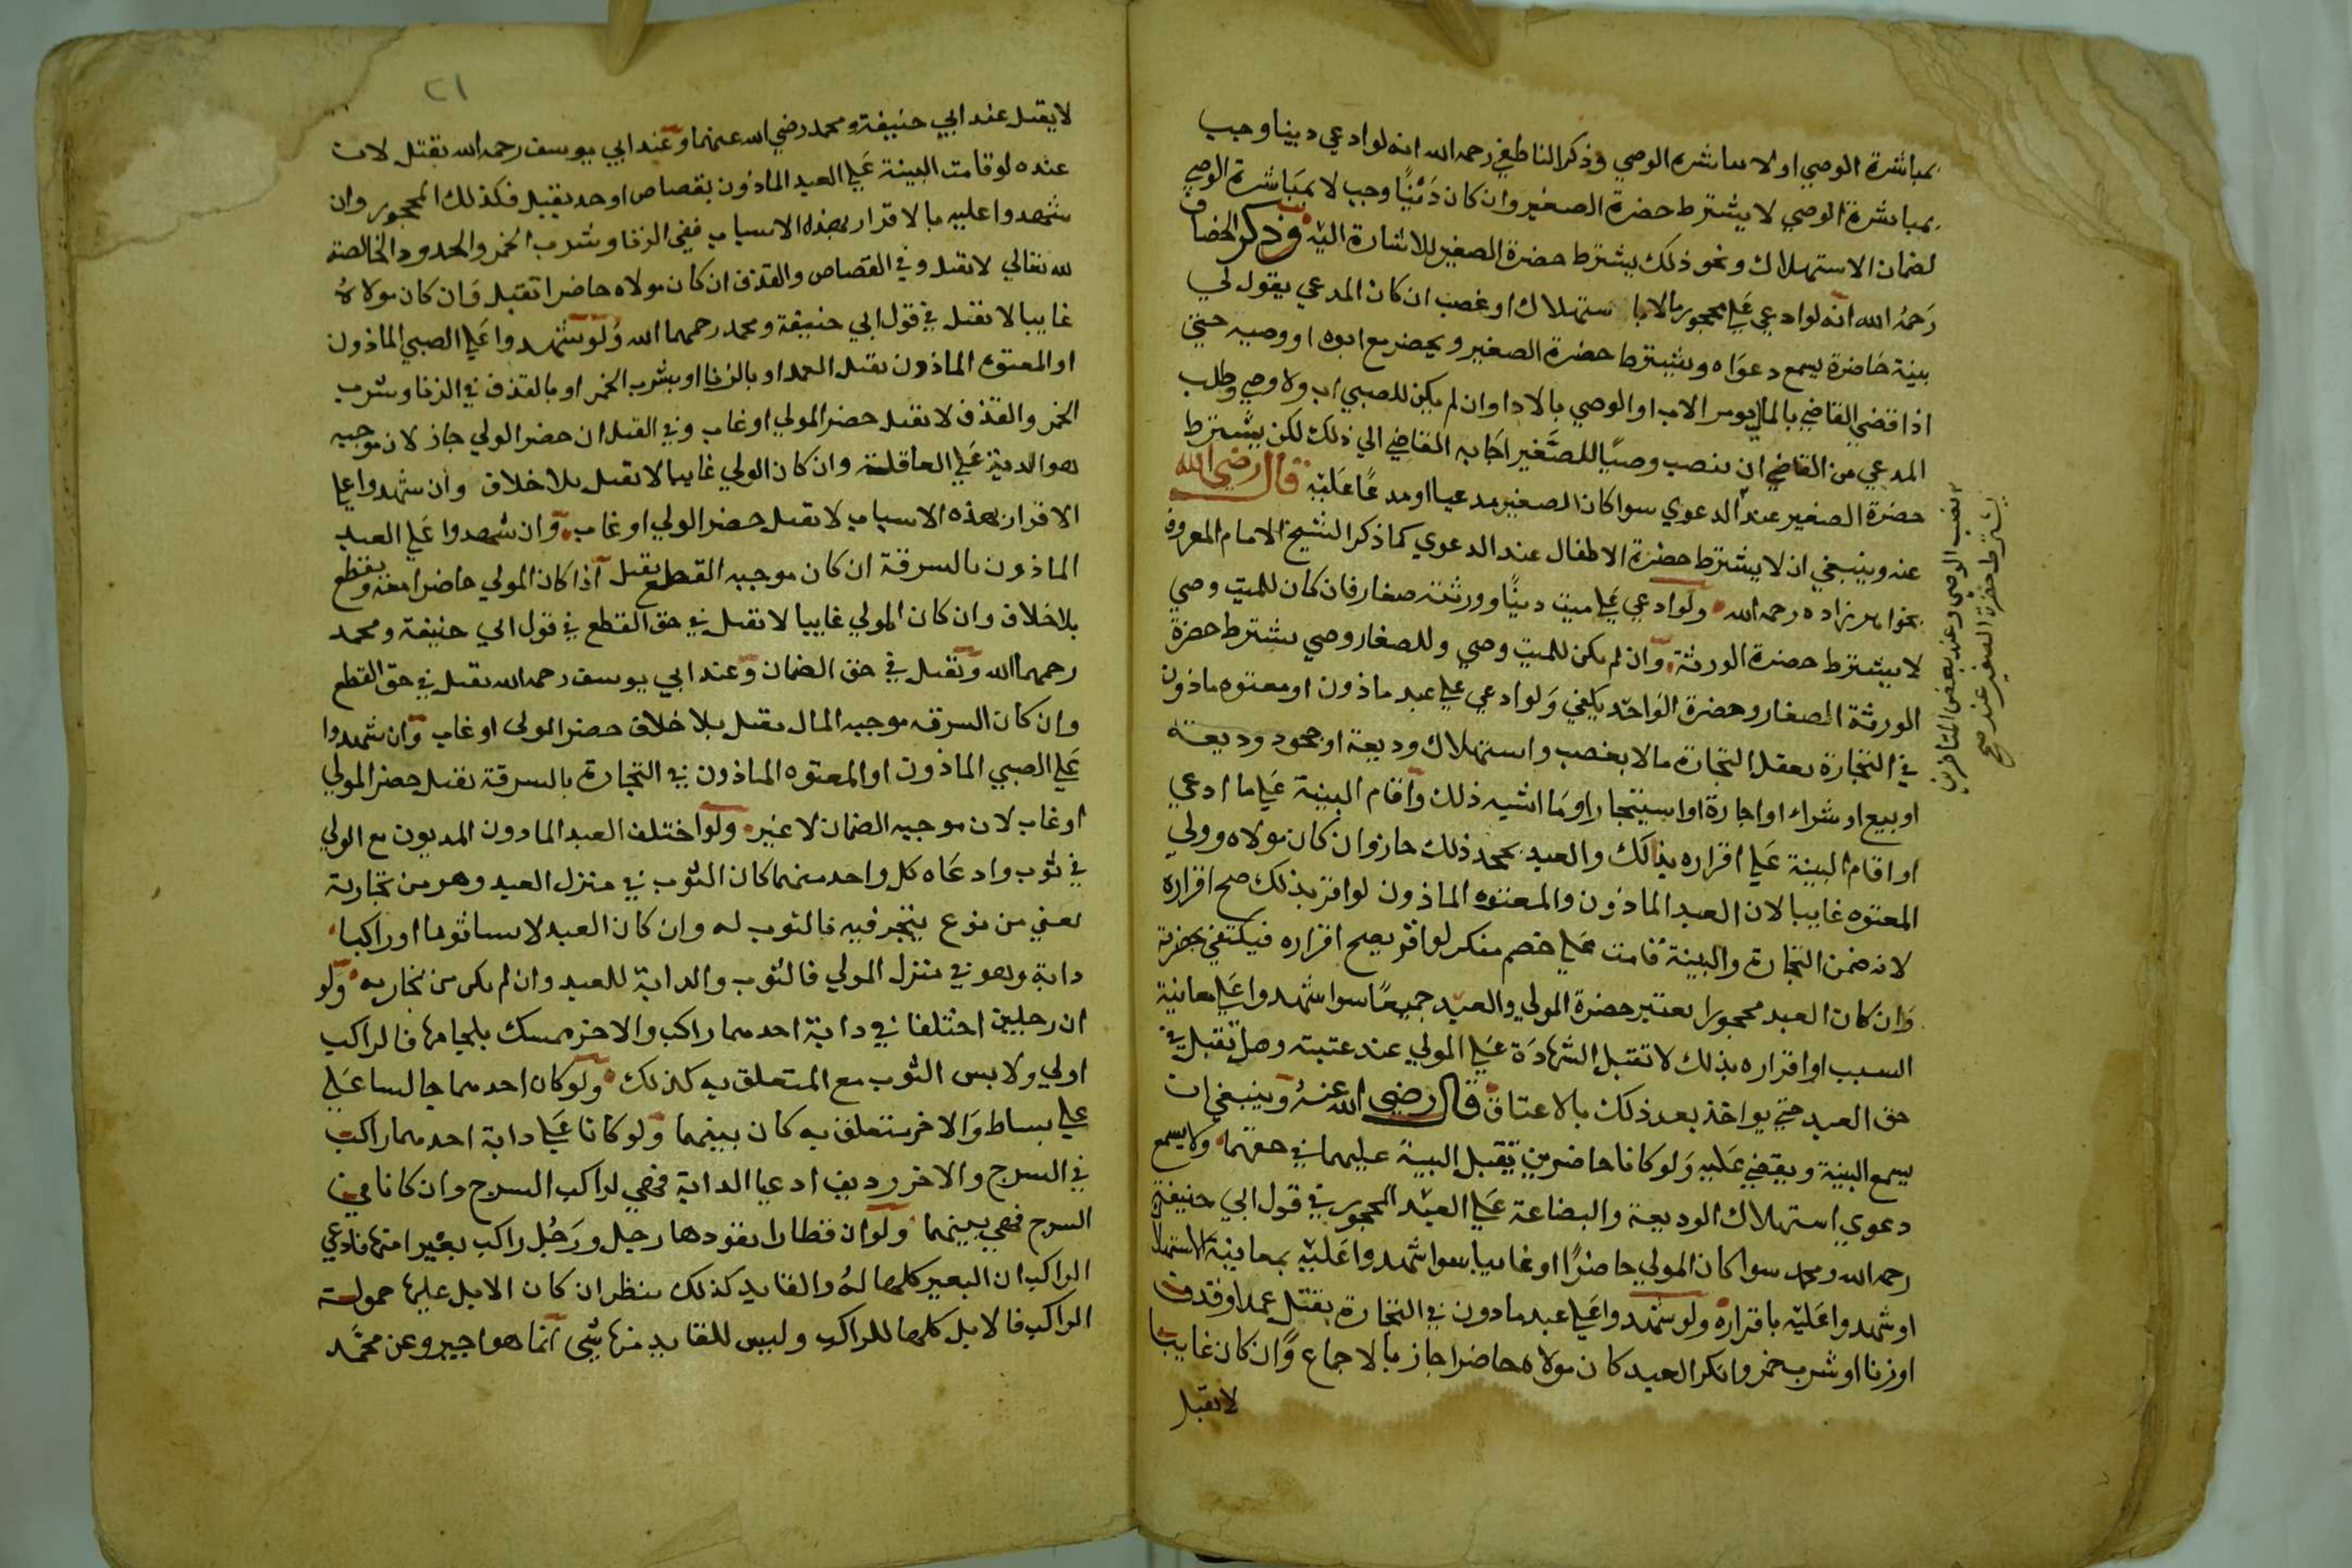 بمباشرة الوصي اولا بمباشرة الوصي وذكر الناطفي رحمه الله انه لو ادعي دينا وجب
بمباشرة الوصي لا يشترط حضرة الصغير وان كان دَيْنًا وجب لا بمبَاشرة الوصي
لضمان الاستهلاك ونحو ذلك يشترط حضرة الصغير للاشارة اليه وذكر الخصاف
رَحمهُ الله انّه لو ادعي عَلي محجور مالا با ستهلاك او غصب ان كان المدعي يقول لي
بينة حَاضرة يسمع دعوَاه ويشترط حضرة الصغير ويحضر مع ابوه او وصيه حتي
اذا قضي القاضي بالمال يومر الاب او الوصي بالادا وان لم يكن للصبي اب ولا وصي وطلب
المدعي من القاضي ان ينصب وصيًا للصَّغير اجَابه القاضي الي ذلك لكن يشترط
حضرة الصغير عند الدعوي سوا كان الصغير مدعيا او مدعًا عَليْه قال رضي الله
عنه وينبغي ان لا يشترط حضرة الاطفال عند الدعوي كما ذكر الشيخ الامام المعروف
بخواهر زاده رحمه الله ولو ادعي عَلي ميت دينًا وورثته صغار فان كان للميت وصي
لا يشترط حضرة الورثة وان لم يكن للميت وصي وللصغار وصي يشترط حضرة
الورثة الصغار وحضرة الوَاحد يكفي وَلو ادعي علي عبد ماذون او معتوه ماذون
في التجارة يعقل التجارة مالا بغصب واستهلاك وديعة او جحود وديعة
او بيع او شراء او اجارة او استيجار او مَا اشبه ذلك وَاقام البينة عَلي ما ادعي
او اقام البينة عَلي اقراره بذلك والعبد يجحد ذلك جاز وان كان مولاه وولي
المعتوه غايبا لان العبد الماذون والمعتوه الماذون لو اقر بذلك صح اقراره
لانه ضمن التجارة والبينة قامت عَلي خصم منكر لو اقر يصح اقراره فيكتفي بحضرته
وَان كان العبد محجورا يعتبر حضرة المولي والعبد جميعًا سوا شهدوا عَلي معاينة
السبب او اقراره بذلك لا تقبل الشهادَة عَلي المولي عند غيبته وهل تقبل في
حق العبد حتي يواخذ بعد ذلك بالاعتاق قال رضي الله عنهُ وينبغي ان
يسمع البينة ويقضي عَليه وَلو كانا حاضرين تقبل البينة عليهما في حقهما ولا يسمع
دعوي استهلاك الوديعة والبضاعة عَلي العبْد المحجور في قول ابي حنيفة
رحمه الله ومحمد سوا كان المولي حاضرًا او غايبا سوا شهدوا عَليْه بمعاينة الاستهلاك
او شهدوا عَليْه باقراره ولو شهدوا عَلي عبد ماذون في التجارة بقتل عمد او قذف
او زنا او شرب خمر وانكر العبد كان مولاه حاضرا جاز بالاجماع وَان كان غايبا
لا تقبل
نصب الوصي وعند بعض المتاخرين
يشترط حضرة الصغير عند صح
٢١
لا يقبل عند ابي حنيفة ومحمد رضي الله عنهما وعند ابي يوسف رحمه الله يقبل لان
عنده لو قامت البينة عَلي العبد الماذون بقصاص او حد يقبل فكذلك المحجور وان
شهدوا عليه بالاقرار بهذه الاسباب ففي الزنا وشرب الخمر والحدود الخالصة
لله تعالي لا تقبل وفي القصاص والقذف ان كان مولاه حاضرا تقبل وَان كان مولاهُ
غايبا لا تقبل في قول ابي حنيفة ومحمد رحمهما الله وَلو شهدوا عَلي الصبي الماذون
او المعتوه الماذون بقتل العمد او بالزنا او بشرب الخمر او بالقذف في الزنا وشرب
الخمر والقذف لا تقبل حضر المولي او غاب وفي القتل ان حضر الولي جاز لان موجبه
هو الدية عَلي العاقلة وان كان الولي غايبا لا تقبل بلا خلاف وان شهدوا علي
الاقرار بهذه الاسباب لا تقبل حضر الولي او غاب وَان شهدوا عَلي العبد
الماذون بالسرقة ان كان موجبه القطع تقبل اذا كان المولي حاضرا معه ويقطع
بلا خلاف وان كان المولي غايبا لا تقبل في حق القطع في قول ابي حنيفة ومحمد
رحمهما الله وتقبل في حق الضمان وَعند ابي يوسف رحمه الله تقبل في حق القطع
وان كان السرقه موجبه المال تقبل بلا خلاف حضر المولى او غاب وَان شهدوا
عَلي الصبي الماذون او المعتوه الماذون في التجارة بالسرقة تقبل حضر المولي
او غاب لان موجبه الضمان لا غير ولو اختلف العبد الماذون المديون مع الولي
في ثوب وادعَاه كل واحد منهما كان الثوب في منزل العبد وهو من تجارته
يعني من نوع يتجر فيه فالثوب له وان كان العبد لابسا ثوبا او راكبا
دابة وهو في منزل المولي فالثوب والدابة للعبد وان لم يكن من تجارته وَلو
ان رجلين اختلفا في دابة احدهما راكب والاخر ممسك بلجامها فالراكب
اولي ولابس الثوب مع المتعلق به كذلك ولو كان احدهما جالسا عَلي
علي بساط وَالاخر متعلق به كان بينهما وَلو كانا عَلي دابة احدهما راكب
في السرج والاخر رديف ادعيا الدابة فهي لراكب السرج وان كانا في
السرج فهي بينهما ولو ان قطارا يقودها رجل ورَجُل راكب بعير امنها فادعي
الراكب ان البعير كلها لهُ والقايد كذلك ينظر ان كان الابل عليها حمولة
الراكب فالابل كلها للراكب وليس للقايد منها شي انما هو اجير وعن محمَّد